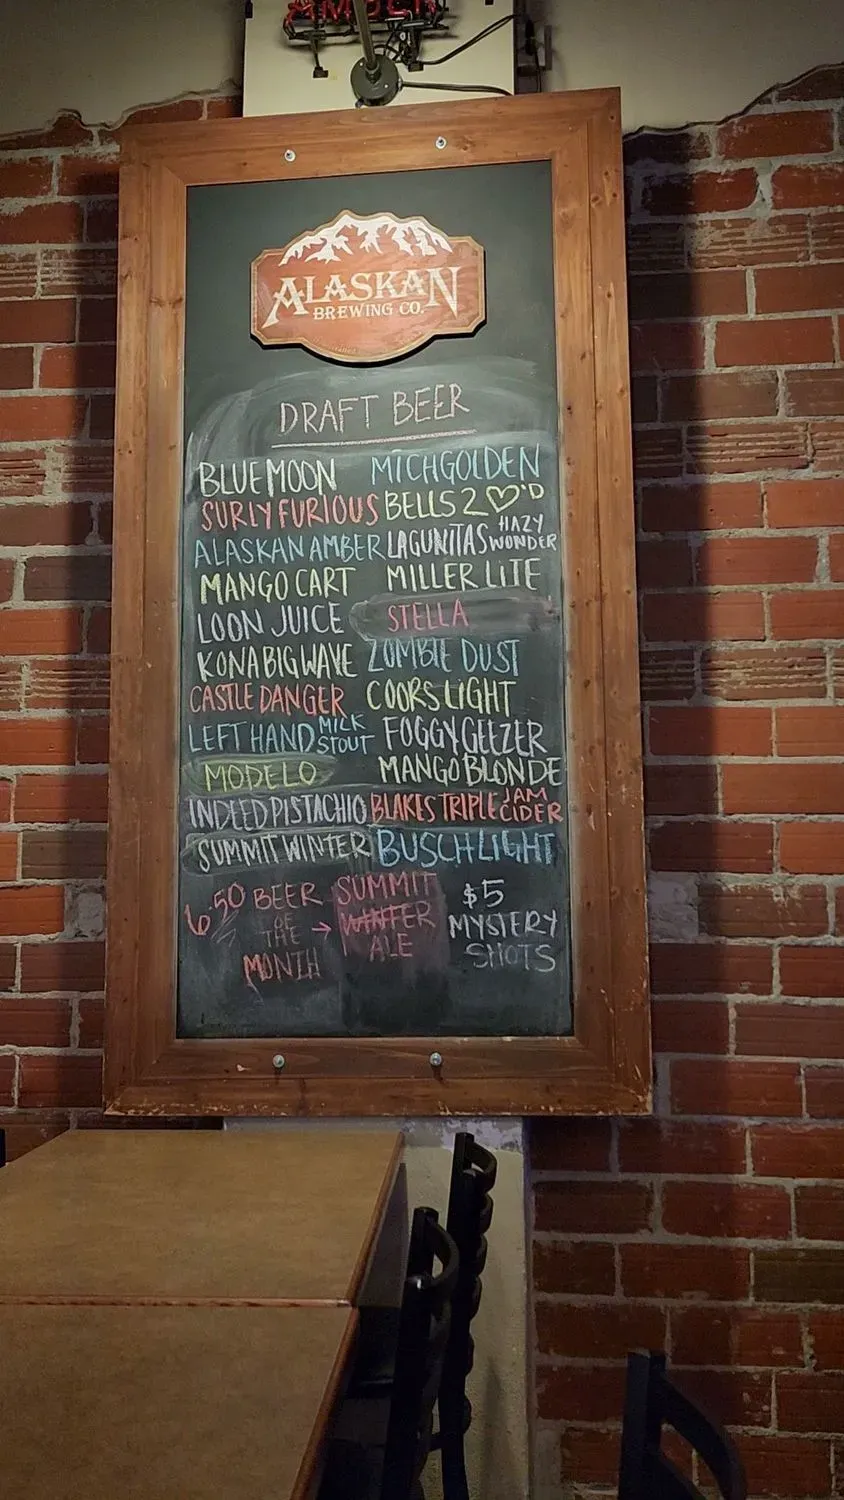 AMBER
ALASKAN
BREWING CO.
DRAFT BEER
BLUE MOON
SURLY FURIOUS
ALASKAN AMBER
MANGO CART
LOON JUICE
KONA BIG WAVE
CASTLE DANGER
LEFT HAND MILK STOUT
MODELO
INDEED PISTACHIO
SUMMIT WINTER
MICHGOLDEN
BELLS 2 ♡'D
LAGUNITAS HAZY WONDER
MILLER LITE
STELLA
ZOMBIE DUST
COORS LIGHT
FOGGY GEEZER
MANGO BLONDE
BLAKES TRIPLE JAM CIDER
BUSCH LIGHT
6.50 BEER
OF
THE →
MONTH
SUMMIT
WINTER
ALE
$5
MYSTERY
SHOTS